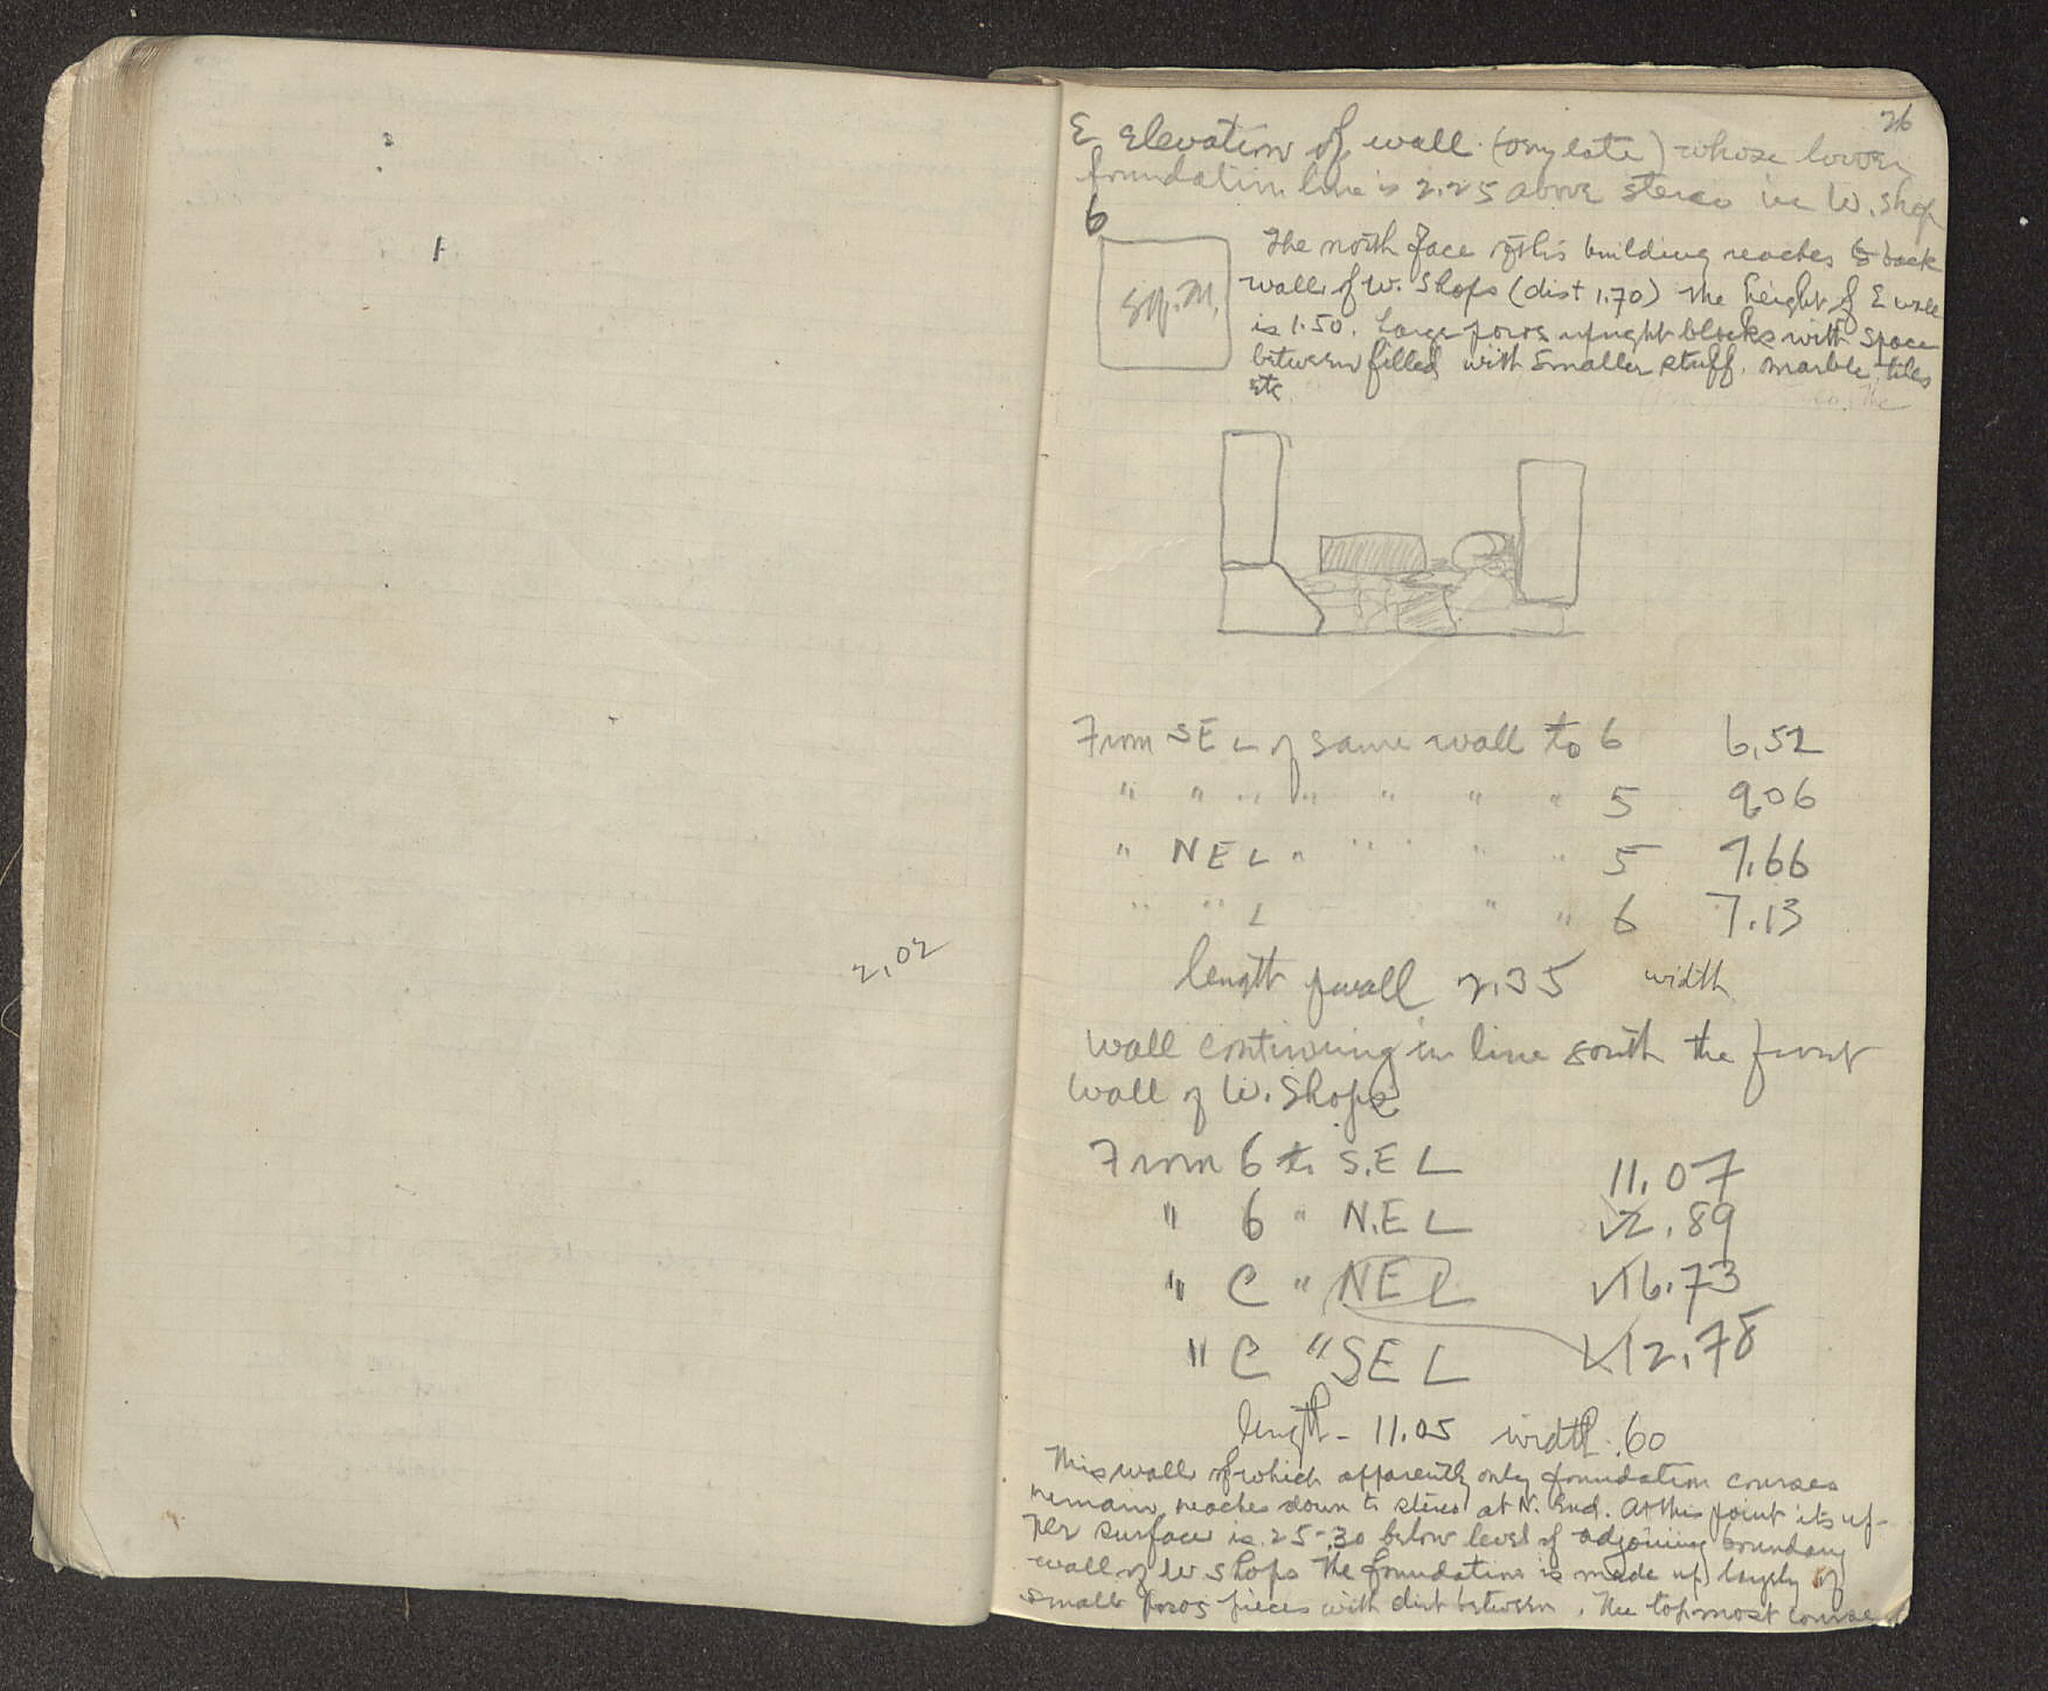 2,02
26
E Elevation of wall (very late) whose lower
foundation line is 2.25 above stereo in W. Shop
6
The north face of this building reaches to back
wall of W. Shops (dist 1.70) The height of E wall
is 1.50. Large poros upright blocks with space
between filled with smaller stuff. marble tiles
etc
From SEL of same wall to 6 6,52
" " " " " " " 5 9.06
" NEL " " " " 5 7.66
" " L " " 6 7.13
length of wall 2.35 width
Wall continuing in line south the front
wall of W. Shops
From 6 to S.E L 11.07
" 6 " N.E L 2.89
" C " NEL 16.73
" C " SEL 12.78
length - 11.05 width .60
This wall of which apparently only foundation courses
remain, reaches down to stereo at N. End. At this point its up-
per surface is .25-.30 below level of adjoining boundary
wall of W Shops The foundation is made up largely of
small poros pieces with dirt between. The topmost course